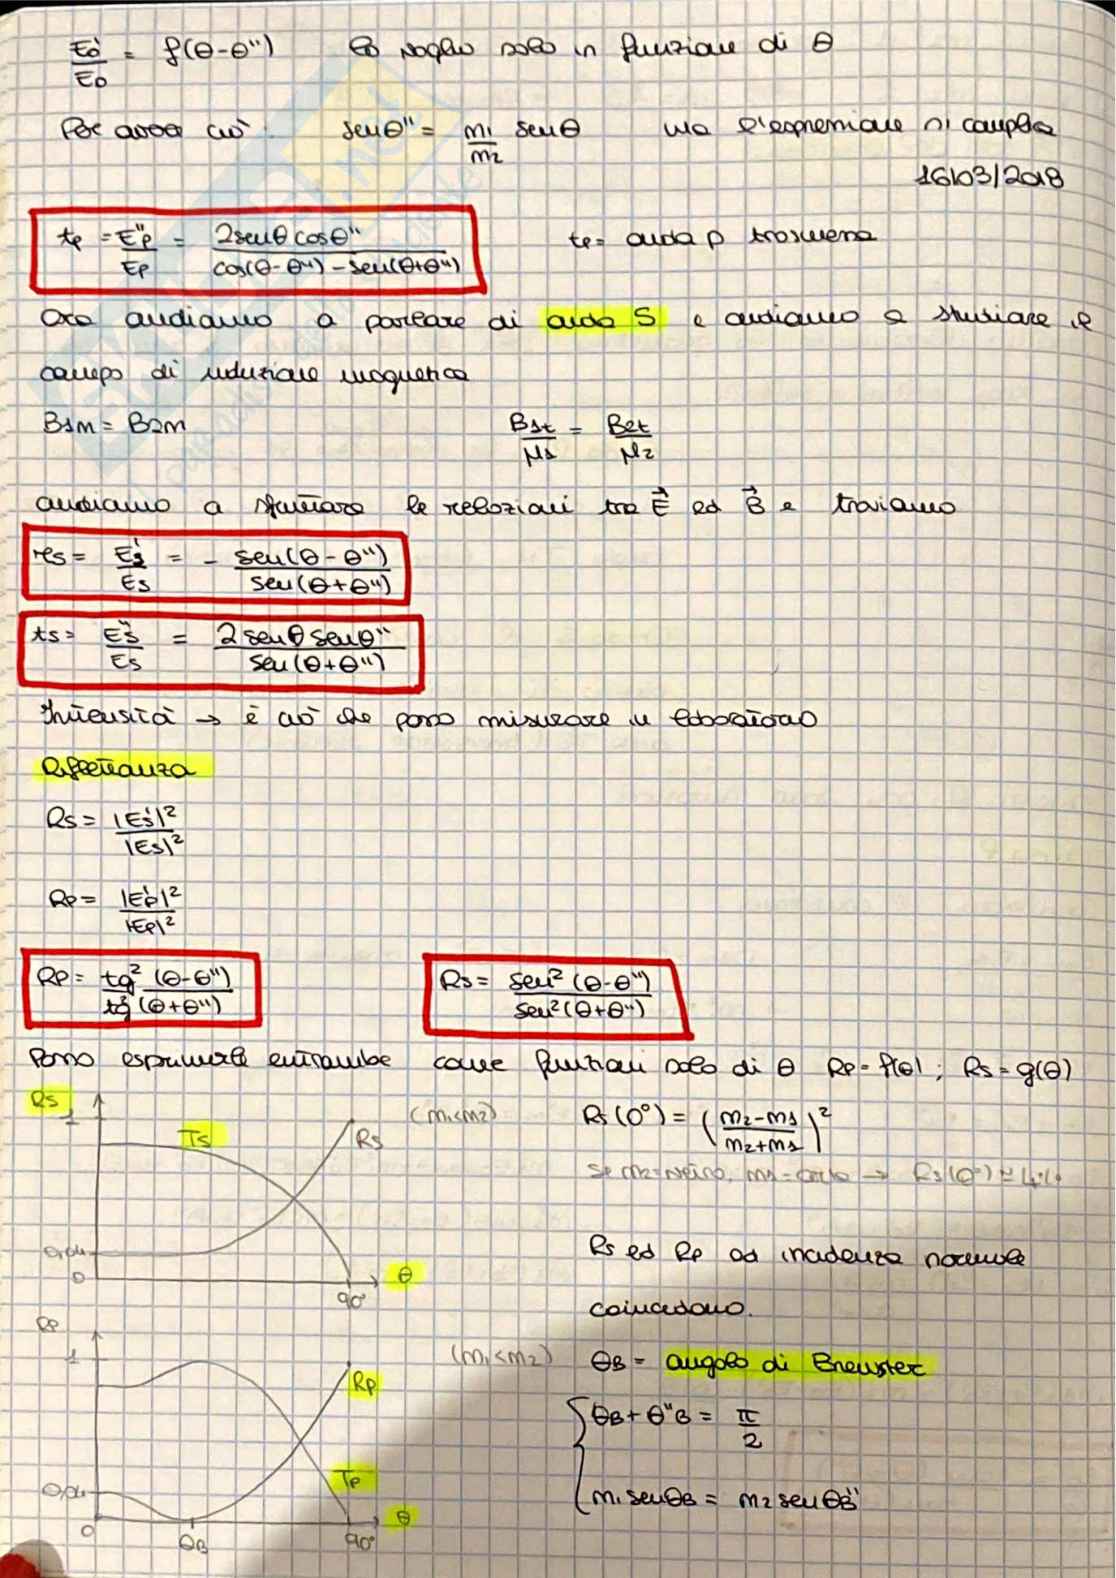 E'o/Eo = f(θ-θ'') Lo voglio solo in funzione di θ
Per avere ciò senθ'' = n1/n2 senθ ma l'espressione si complica
16/03/2018
tp = E''p/Ep = 2senθcosθ''/cos(θ-θ'')-sen(θ+θ'') tp= onda p trasmessa
Ora andiamo a parlare di onda S e andiamo a studiare il
campo di induzione magnetica
B1n = B2n B1t/μ1 = B2t/μ2
andiamo a sfruttare le relazioni tra E⃗ ed B⃗ e troviamo
rs = E's/Es = - sen(θ-θ'')/sen(θ+θ'')
ts= E''s/Es = 2senθsenθ''/sen(θ+θ'')
Intensità → è ciò che posso misurare in laboratorio
Riflettanza
Rs = |E's|²/|Es|²
Rp= |E'p|²/|Ep|²
Rp= tg²(θ-θ'')/tg²(θ+θ'') Rs= sen²(θ-θ'')/sen²(θ+θ'')
Posso esprimerle entrambe come funzioni solo di θ Rp=f(θ); Rs=g(θ)
Rs
1
Ts
Rs
(n1<n2)
0,04
0
90°
θ
Rs(0°) = (n2-n1/n2+n1)²
se n2=vetro, n1=aria → Rs(0°)≃4%
Rs ed Rp ad incidenza normale
coincidono.
Rp
1
(n1<n2)
Rp
Tp
0,04
0
θB
90°
θ
θB = angolo di Brewster
θB+θ''B = π/2
n1senθB = n2senθ''B